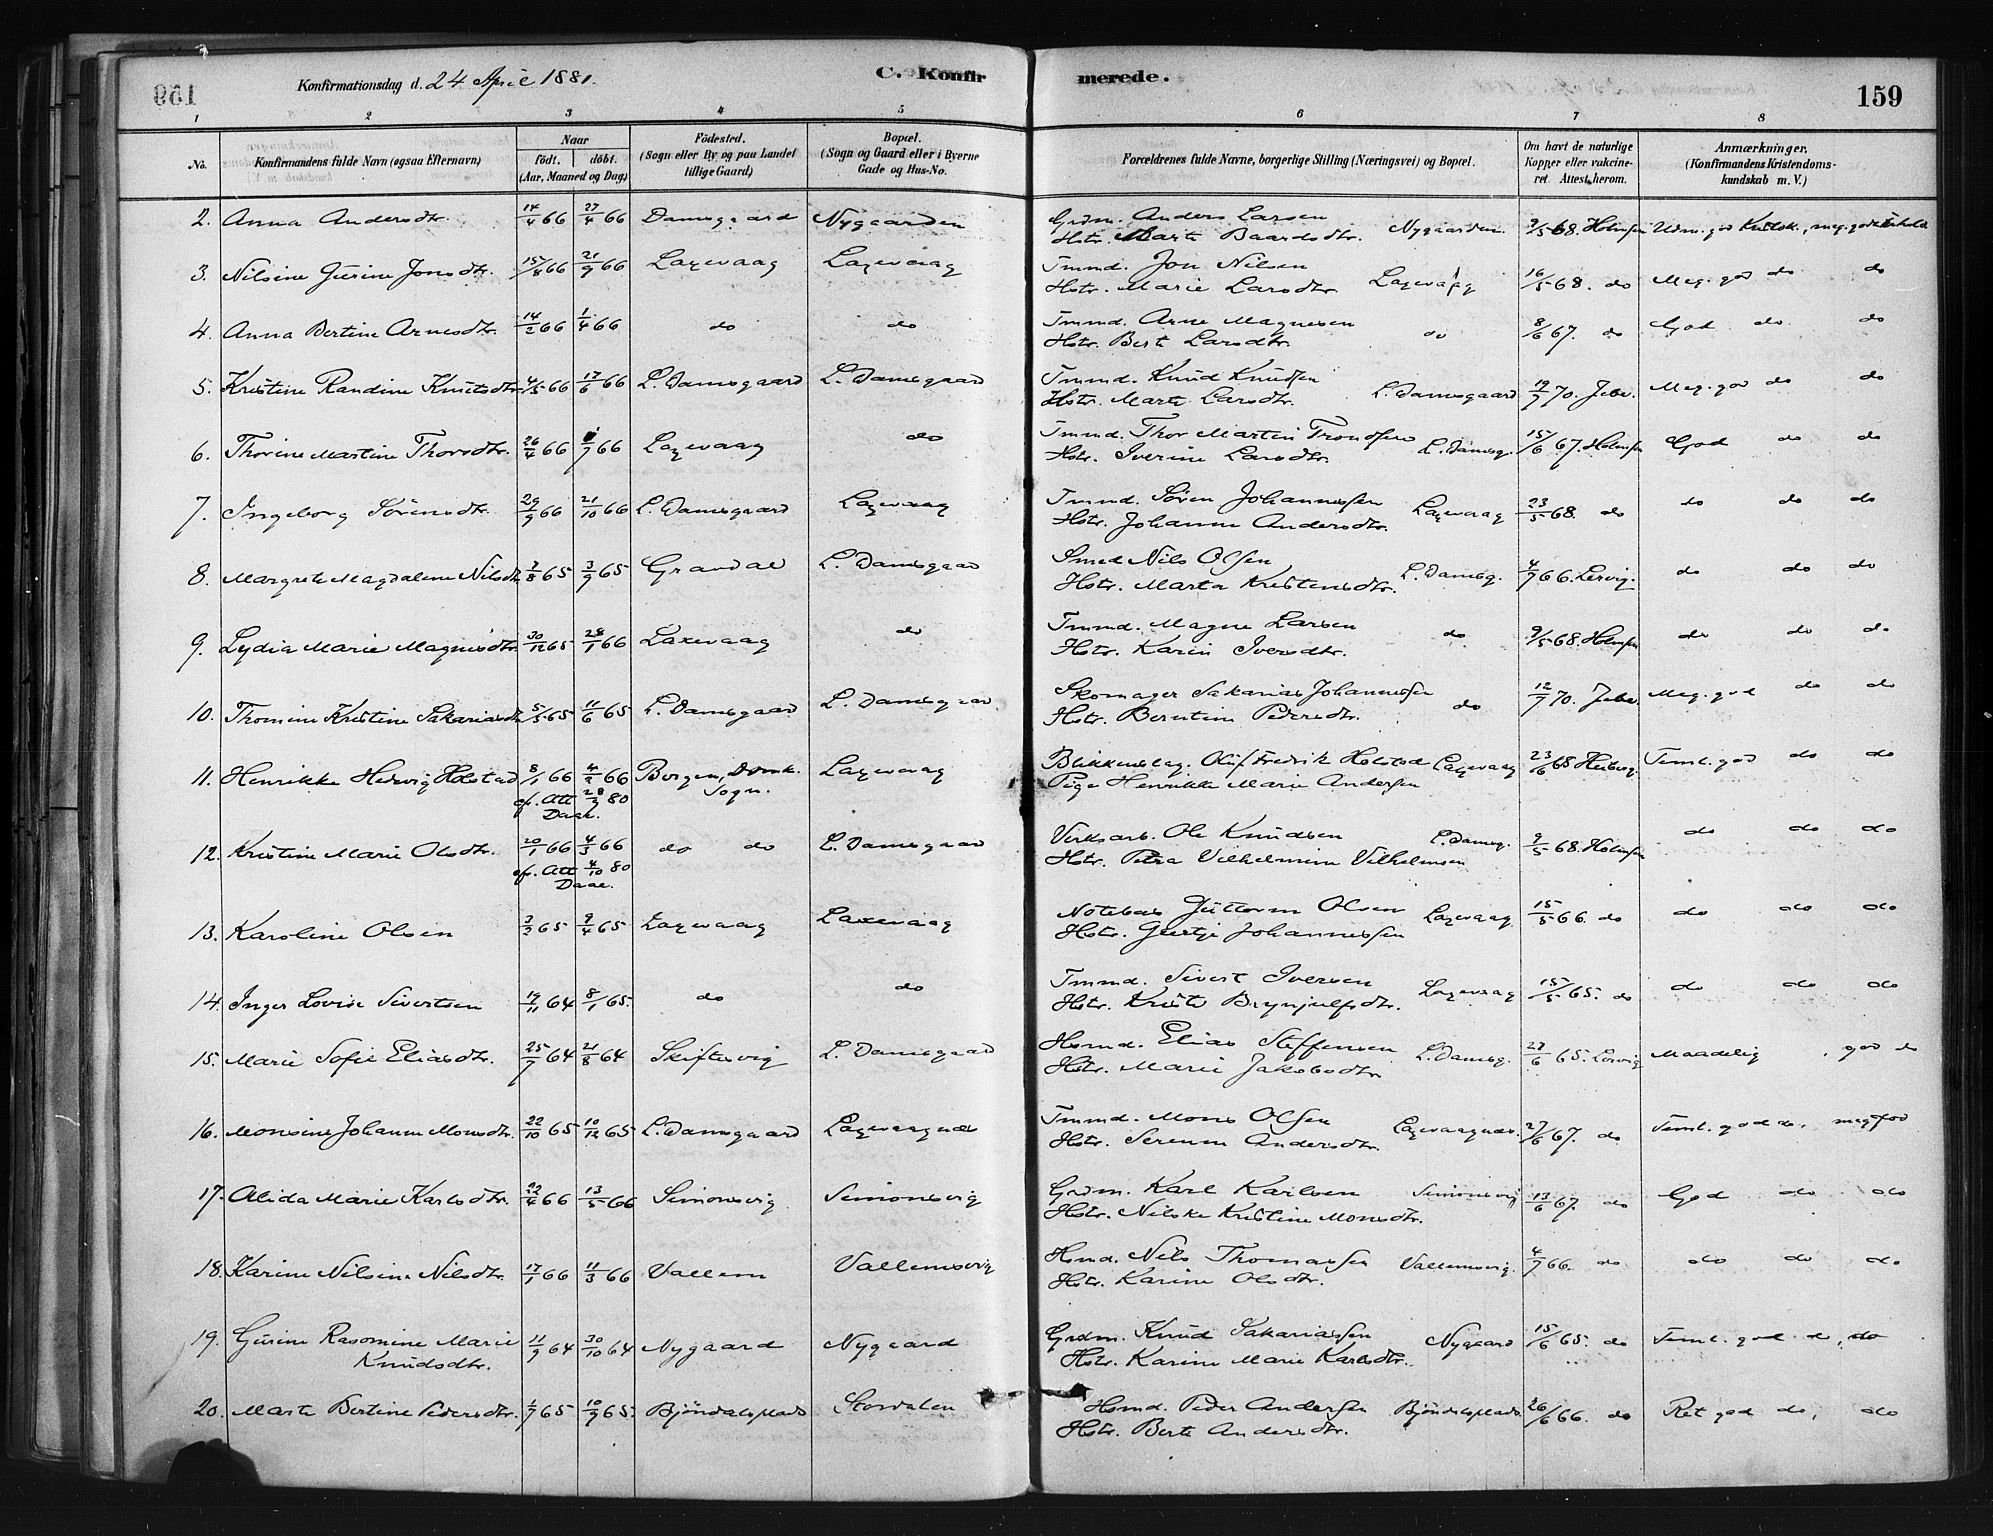 Konfirmationsdag d. 24 April 1881.
C. Konfirmerede.
159
1 2 3 4 5 6 7 8
No. Konfirmandens fulde Navn (ogsaa Efternavn) Naar født. døbt. (Aar, Maaned og Dag) Födested. (Sogn eller By og paa Landet tillige Gaard) Bopæl. (Sogn og Gaard eller i Byerne Gade og Hus-No. Forældrenes fulde Navne, borgerlige Stilling (Næringsvei) og Bopæl. Om havt de naturlige Kopper eller vakcineret Attest herom. Anmærkninger. (Konfirmandens Kristendomskundskab m. V.)
2. Anna Andersdtr. 14/4 66 27/4 66 Damsgaard Nygaarden Grdm. Anders Larsen Nygaarden 9/5 68. Holmsen Udm. god Kridsk., meg. god Forhold
Hstr. Marta Baardsdtr.
3. Nilsine Gurine Jonsdtr. 15/8 66 21/9 66 Laxevaag Laxevaag Tmmd. Jon Nilsen Laxevaag 16/5 68. do Meg. god do do
Hstr. Marie Larsdtr.
4. Anna Bertine Arnesdtr. 14/2 66 1/4 66 do do Tmmd. Arne Magnesen do 8/6 67. do God do do
Hstr. Berte Larsdtr.
5. Kristine Randine Knutsdtr. 4/5 66 17/6 66 L. Damsgaard L. Damsgaard Tmmd. Knud Knudsen L. Damsgaard 19/7 70. Jebe. Meg. god do do
Hstr. Marta Larsdtr.
6. Thorine Martine Thorsdtr. 26/4 66 1/7 66 Laxevaag do Tmmd. Thor Martin Trondsen L. Damsg. 15/6 67. Holmsen God do do
Hstr. Iverine Larsdtr.
7. Ingeborg Sörensdtr. 29/9 66 21/10 66 L. Damsgaard Laxevaag Tmmd. Sören Johannessen Laxevaag 23/5 68. do do do do
Hstr. Johanna Andersdtr.
8. Margrete Magdalene Nilsdtr. 7/8 65 3/9 65 Gravdal L. Damsgaard Smed Nils Olsen L. Damsg. 4/7 66. Lervig. do do do
Hstr. Marta Kristensdtr.
9. Lydia Marie Magnesdtr. 30/12 65 28/1 66 Laxevaag do Tmmd. Magne Larsen do 9/5 68. Holmsen do do do
Hstr. Karin Iversdtr.
10. Thomine Kristine Sakariasdtr. 5/5 65 11/6 65 L. Damsgaard L. Damsgaard Skomager Sakarias Johannessen do 12/7 70. Jebe Meg. god do do
Hstr. Berntine Pedersdtr.
11. Henrikke Hedvig Holstad 8/1 66 4/2 66 Bergen, Domk. Sogn. Laxevaag Blikkenslag. Oluf Fredrik Holstad Laxevaag 23/6 68 Heiberg. Teml. god do do
cf. Att 28/9 80 Daae. Pige Henrikke Marie Andersen
12. Kristine Marie Olsdtr. 20/1 66 4/3 66 do do L. Damsgaard Verksarb. Ole Knudsen L. Damsg. 9/5 68. Holmsen do do do
cf. Att 4/10 80 Daae. Hstr. Petra Vilhelmine Vilhelmsen
13. Karoline Olsen 3/2 65 9/4 65 Laxevaag Laxevaag Notebas Guttorm Olsen Laxevaag 15/5 66. do do do do
Hstr. Geertje Johannessen
14. Inger Lovise Sivertsen 19/11 64 8/1 65. do do Tmmd. Sivert Iversen Laxevaag 15/5 65. do do do do
Hstr. Kristi Brynjulfsdtr.
15. Marie Sofie Eliasdtr. 25/7 64 21/8 64 Skiftesvig L. Damsgaard Hsmd. Elias Steffensen L. Damsg. 27/6 65. Lervig Maadelig , god do
Hstr. Marie Jakobsdtr.
16. Monsine Johanne Monsdtr. 22/10 65 10/12 65 L. Damsgaard Laxevaagnæs Tmmd. Mons Olsen Laxevaagnæs. 27/6 67. do Teml. god do, meg god
Hstr. Serenne Andersdtr.
17. Alida Marie Karlsdtr. 22/4 66 13/5 66 Simonsvig Simonsvig Grdm. Karl Karlsen Simonsvig 13/6 67. do God do do
Hstr. Nilske Kristine Monsdtr.
18. Karine Nilsine Nilsdtr. 17/1 66 11/3 66 Vallem Vallemsvig Hsmd. Nils Thomassen Vallemsvig. 4/7 66. do do do do
Hstr. Karine Olsdtr.
19. Gurine Rasmine Marie Knudsdtr. 11/9 64 30/10 64 Nygaard Nygaard Grdm. Knud Sakariassen Nygaard 15/6 65. do Teml. god do, do
Hstr. Karine Marie Karlsdtr.
20. Marta Bertine Pedersdtr. 1/7 65 10/9 65. Bjöndalsplads Stordalen Hsmd. Peder Andersen Bjöndalsplads. 26/6 66. do Ret god do, do
Hstr. Berte Andersdtr.